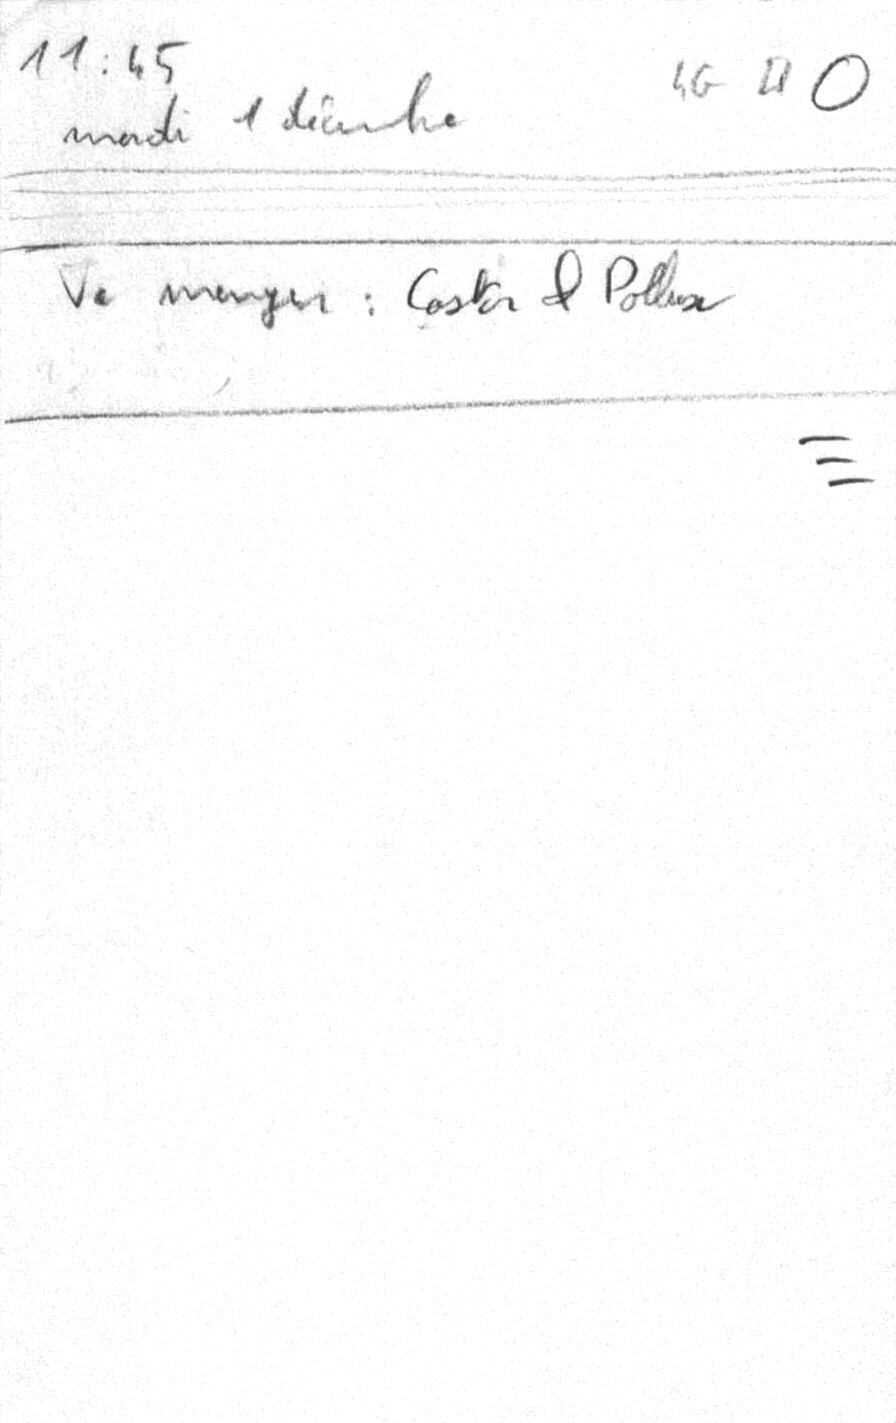 11:45
4G
mardi 1 décembre
Va manger : Castor & Pollux